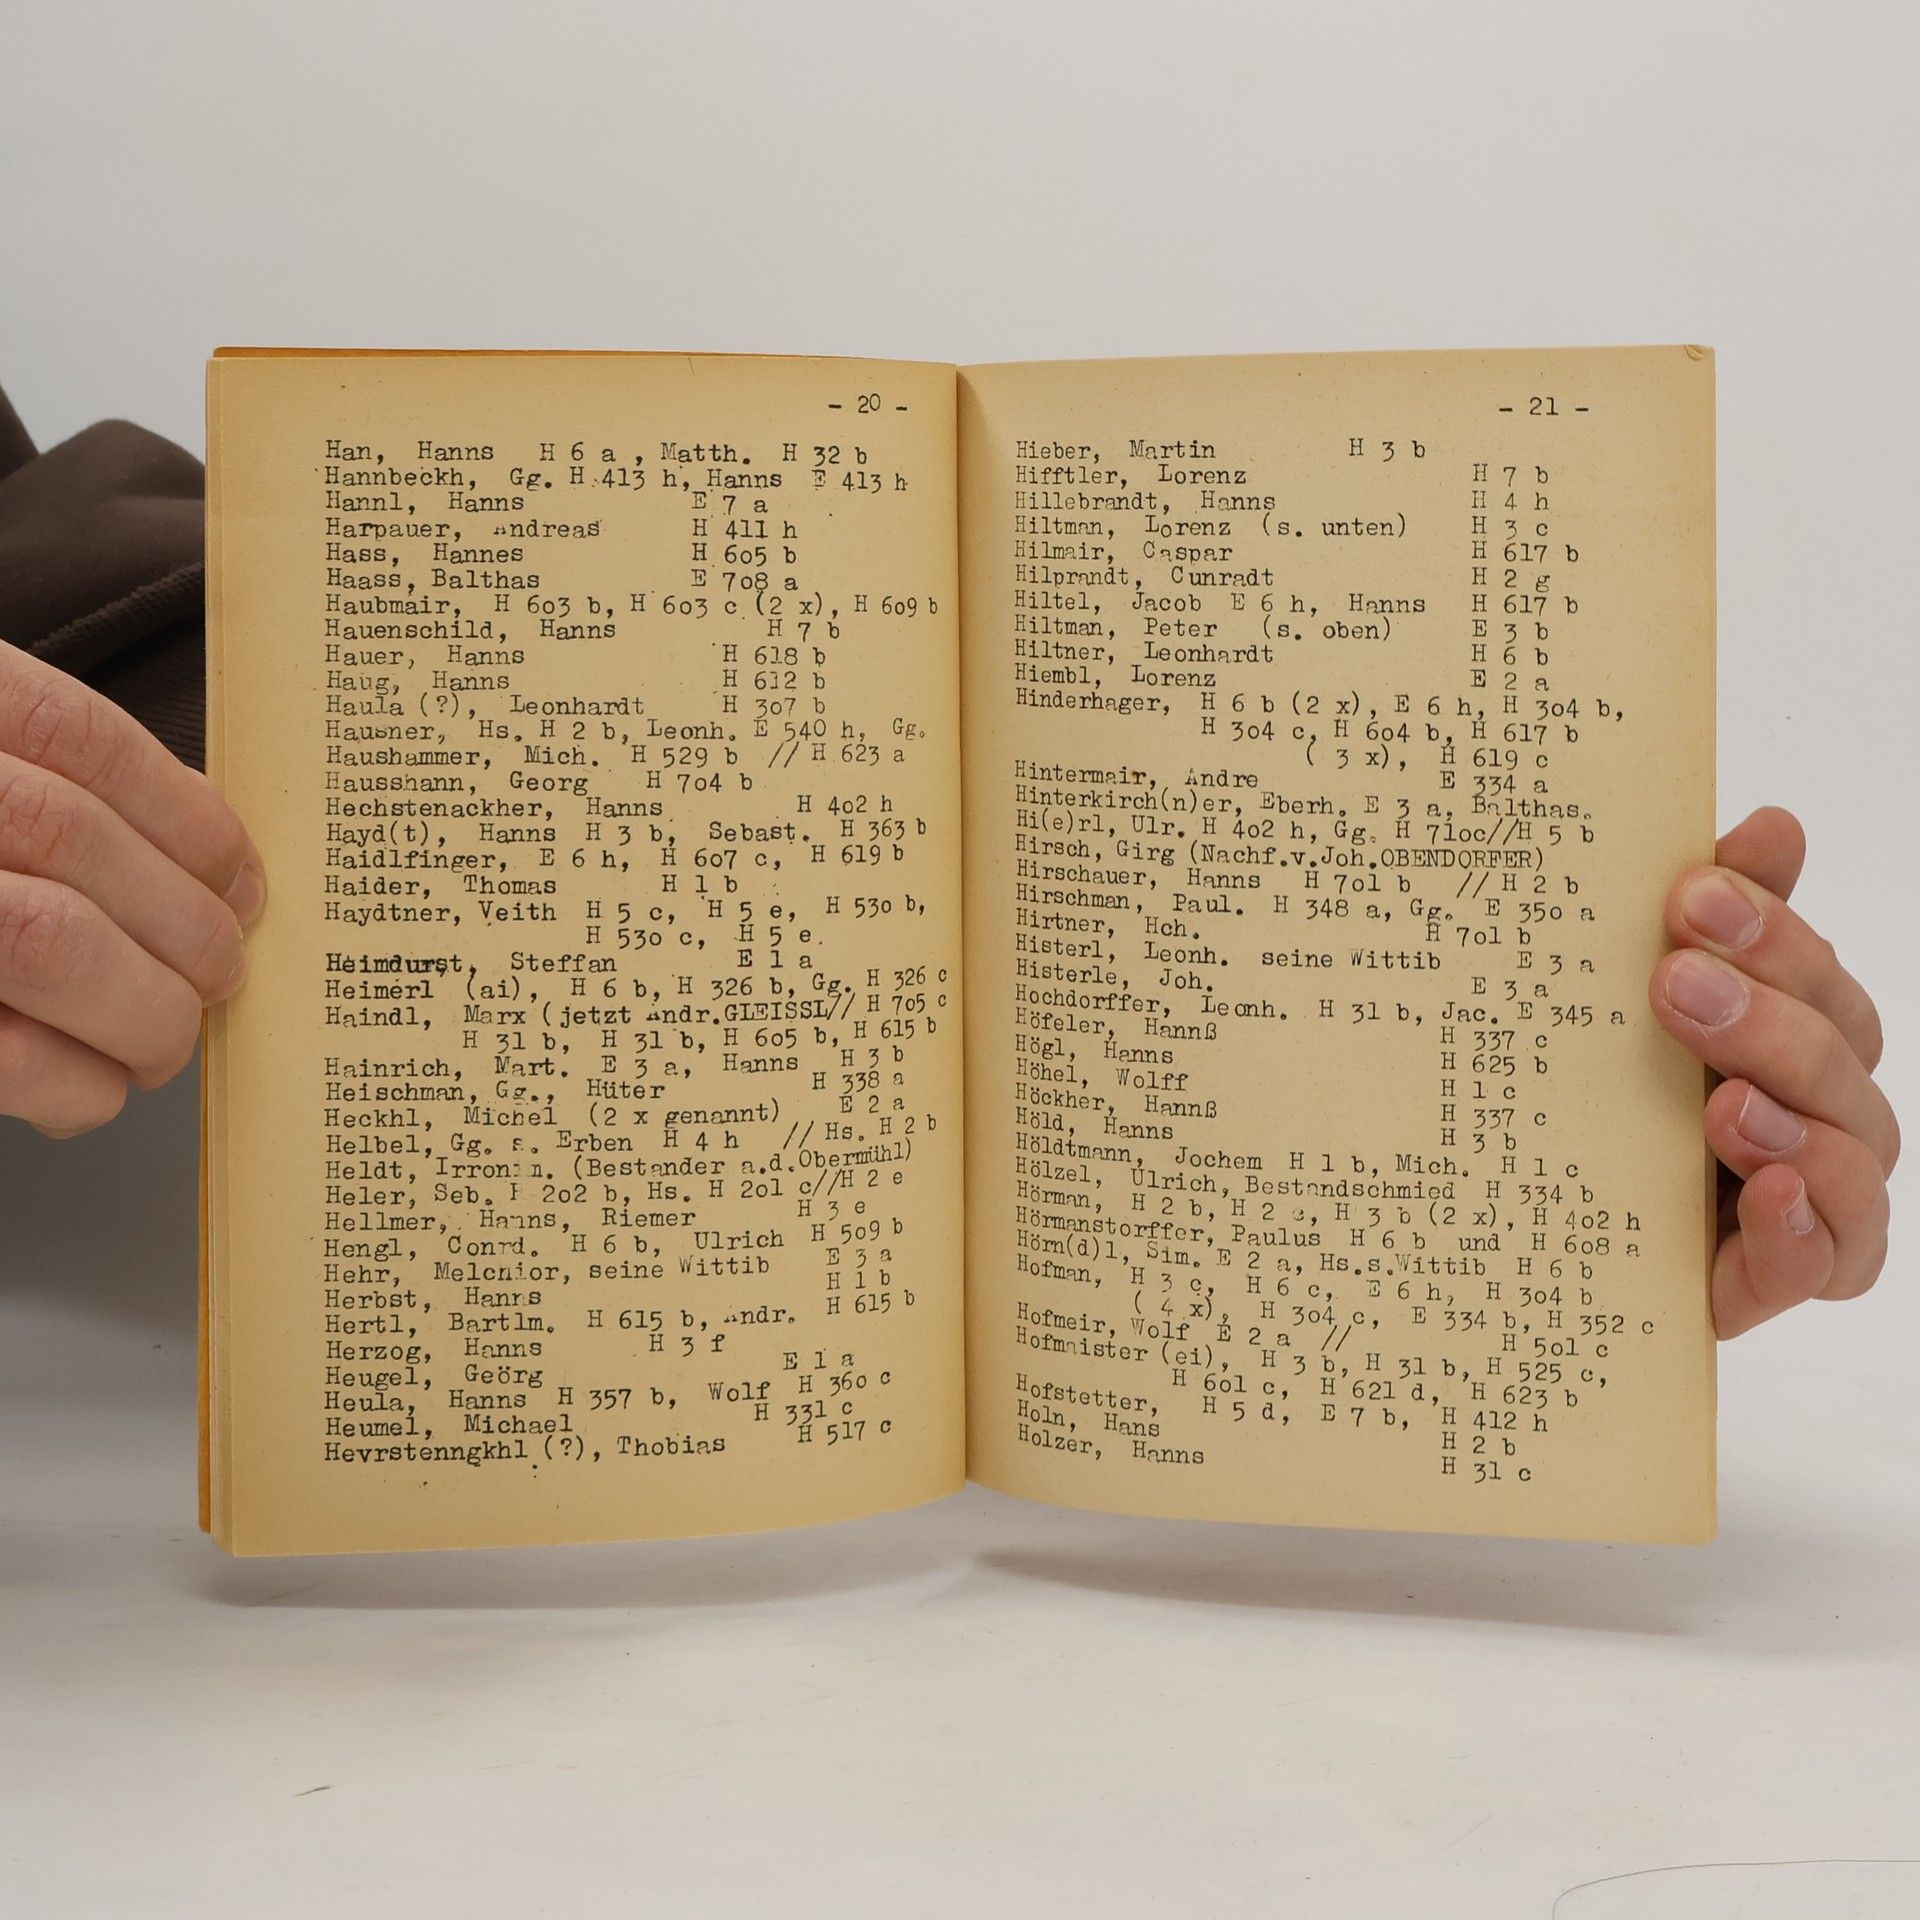 - 20 -
Han, Hanns H 6 a , Matth. H 32 b
Hannbeckh, Gg. H 413 h, Hanns E 413 h
Hannl, Hanns E 7 a
Harpauer, Andreas H 411 h
Hass, Hannes H 605 b
Haass, Balthas E 708 a
Haubmair, H 603 b, H 603 c (2 x), H 609 b
Hauenschild, Hanns H 7 b
Hauer, Hanns H 618 b
Haug, Hanns H 612 b
Haula (?), Leonhardt H 307 b
Hausner, Hs. H 2 b, Leonh. E 540 h, Gg.
Haushammer, Mich. H 529 b // H 623 a
Ausshann, Georg H 704 b
Hechstenackher, Hanns H 402 h
Hayd(t), Hanns H 3 b, Sebast. H 363 b
Haidlfinger, E 6 h, H 607 c, H 619 b
Haider, Thomas H 1 b
Haydtner, Veith H 5 c, H 5 e, H 530 b,
H 530 c, H 5 e
Heimdurst, Steffan E 1 a
Heimerl (ai), H 6 b, H 326 b, Gg. H 326 c
Haindl, Marx (jetzt Andr.GLEISSL// H 705 c
H 31 b, H 31 b, H 605 b, H 615 b
Hainrich, Mart. E 3 a, Hanns H 3 b
Heischman, Gg., Hüter H 338 a
Heckhl, Michel (2 x genannt) E 2 a
Helbel, Gg. s. Erben H 4 h // Hs. H 2 b
Heldt, Irronim. (Bestander a.d.Obermühl)
Heler, Seb. 202 b, Hs. H 201 c//H 2 e
Hellmer, Hanns, Riemer H 3 e
Hengl, Conrd. H 6 b, Ulrich H 509 b
Hehr, Melchior, seine Wittib E 3 a
Herbst, Hanns H 1 b
Hertl, Bartlm. H 615 b, Andr. H 615 b
Herzog, Hanns H 3 f
Heugel, Geörg E 1 a
Heula, Hanns H 357 b, Wolf H 360 c
Heumel, Michael H 331 c
Hevrstenngkhl (?), Thobias H 517 c
- 21 -
Hieber, Martin H 3 b
Hifftler, Lorenz H 7 b
Hillebrandt, Hanns H 4 h
Hiltman, Lorenz (s. unten) H 3 c
Hilmair, Caspar H 617 b
Hilprandt, Cunradt H 2 g
Hiltel, Jacob E 6 h, Hanns H 617 b
Hiltman, Peter (s. oben) E 3 b
Hiltner, Leonhardt H 6 b
Hiembl, Lorenz E 2 a
Hinderhager, H 6 b (2 x), E 6 h, H 304 b,
H 304 c, H 604 b, H 617 b
( 3 x), H 619 c
Hintermair, Andre E 334 a
Hinterkirch(n)er, Eberh. E 3 a, Balthas.
Hi(e)rl, Ulr. H 402 h, Gg. H 710c//H 5 b
Hirsch, Girg (Nachf.v.Joh.OBENDORFER)
Hirschauer, Hanns H 701 b // H 2 b
Hirschman, Paul. H 348 a, Gg. E 350 a
Hirtner, Hch. H 701 b
Histerl, Leonh. seine Wittib E 3 a
Histerle, Joh. E 3 a
Hochdorffer, Leonh. H 31 b, Jac. E 345 a
Höfeler, Hannß H 337 c
Högl, Hanns H 625 b
Höhel, Wolff H 1 c
Höckher, Hannß H 337 c
Höld, Hanns H 3 b
Höldtmann, Jochem H 1 b, Mich. H 1 c
Hölzel, Ulrich, Bestandschmied H 334 b
Hörman, H 2 b, H 2 c, H 3 b (2 x), H 402 h
Hörmanstorffer, Paulus H 6 b und H 608 a
Hörn(d)l, Sim. E 2 a, Hs.s.Wittib H 6 b
Hofman, H 3 c, H 6 c, E 6 h, H 304 b
( 4 x), H 304 c, E 334 b, H 352 c
Hofmeir, Wolf E 2 a // H 501 c
Hofmaister (ei), H 3 b, H 31 b, H 525 c,
H 601 c, H 621 d, H 623 b
Hofstetter, H 5 d, E 7 b, H 412 h
Holn, Hans H 2 b
Holzer, Hanns H 31 c